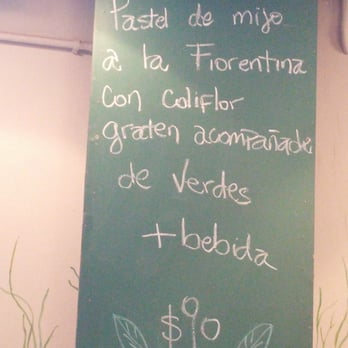 Pastel de mijo
a la Fiorentina
con coliflor
graten acompañade
de verdes
+bebida
$90